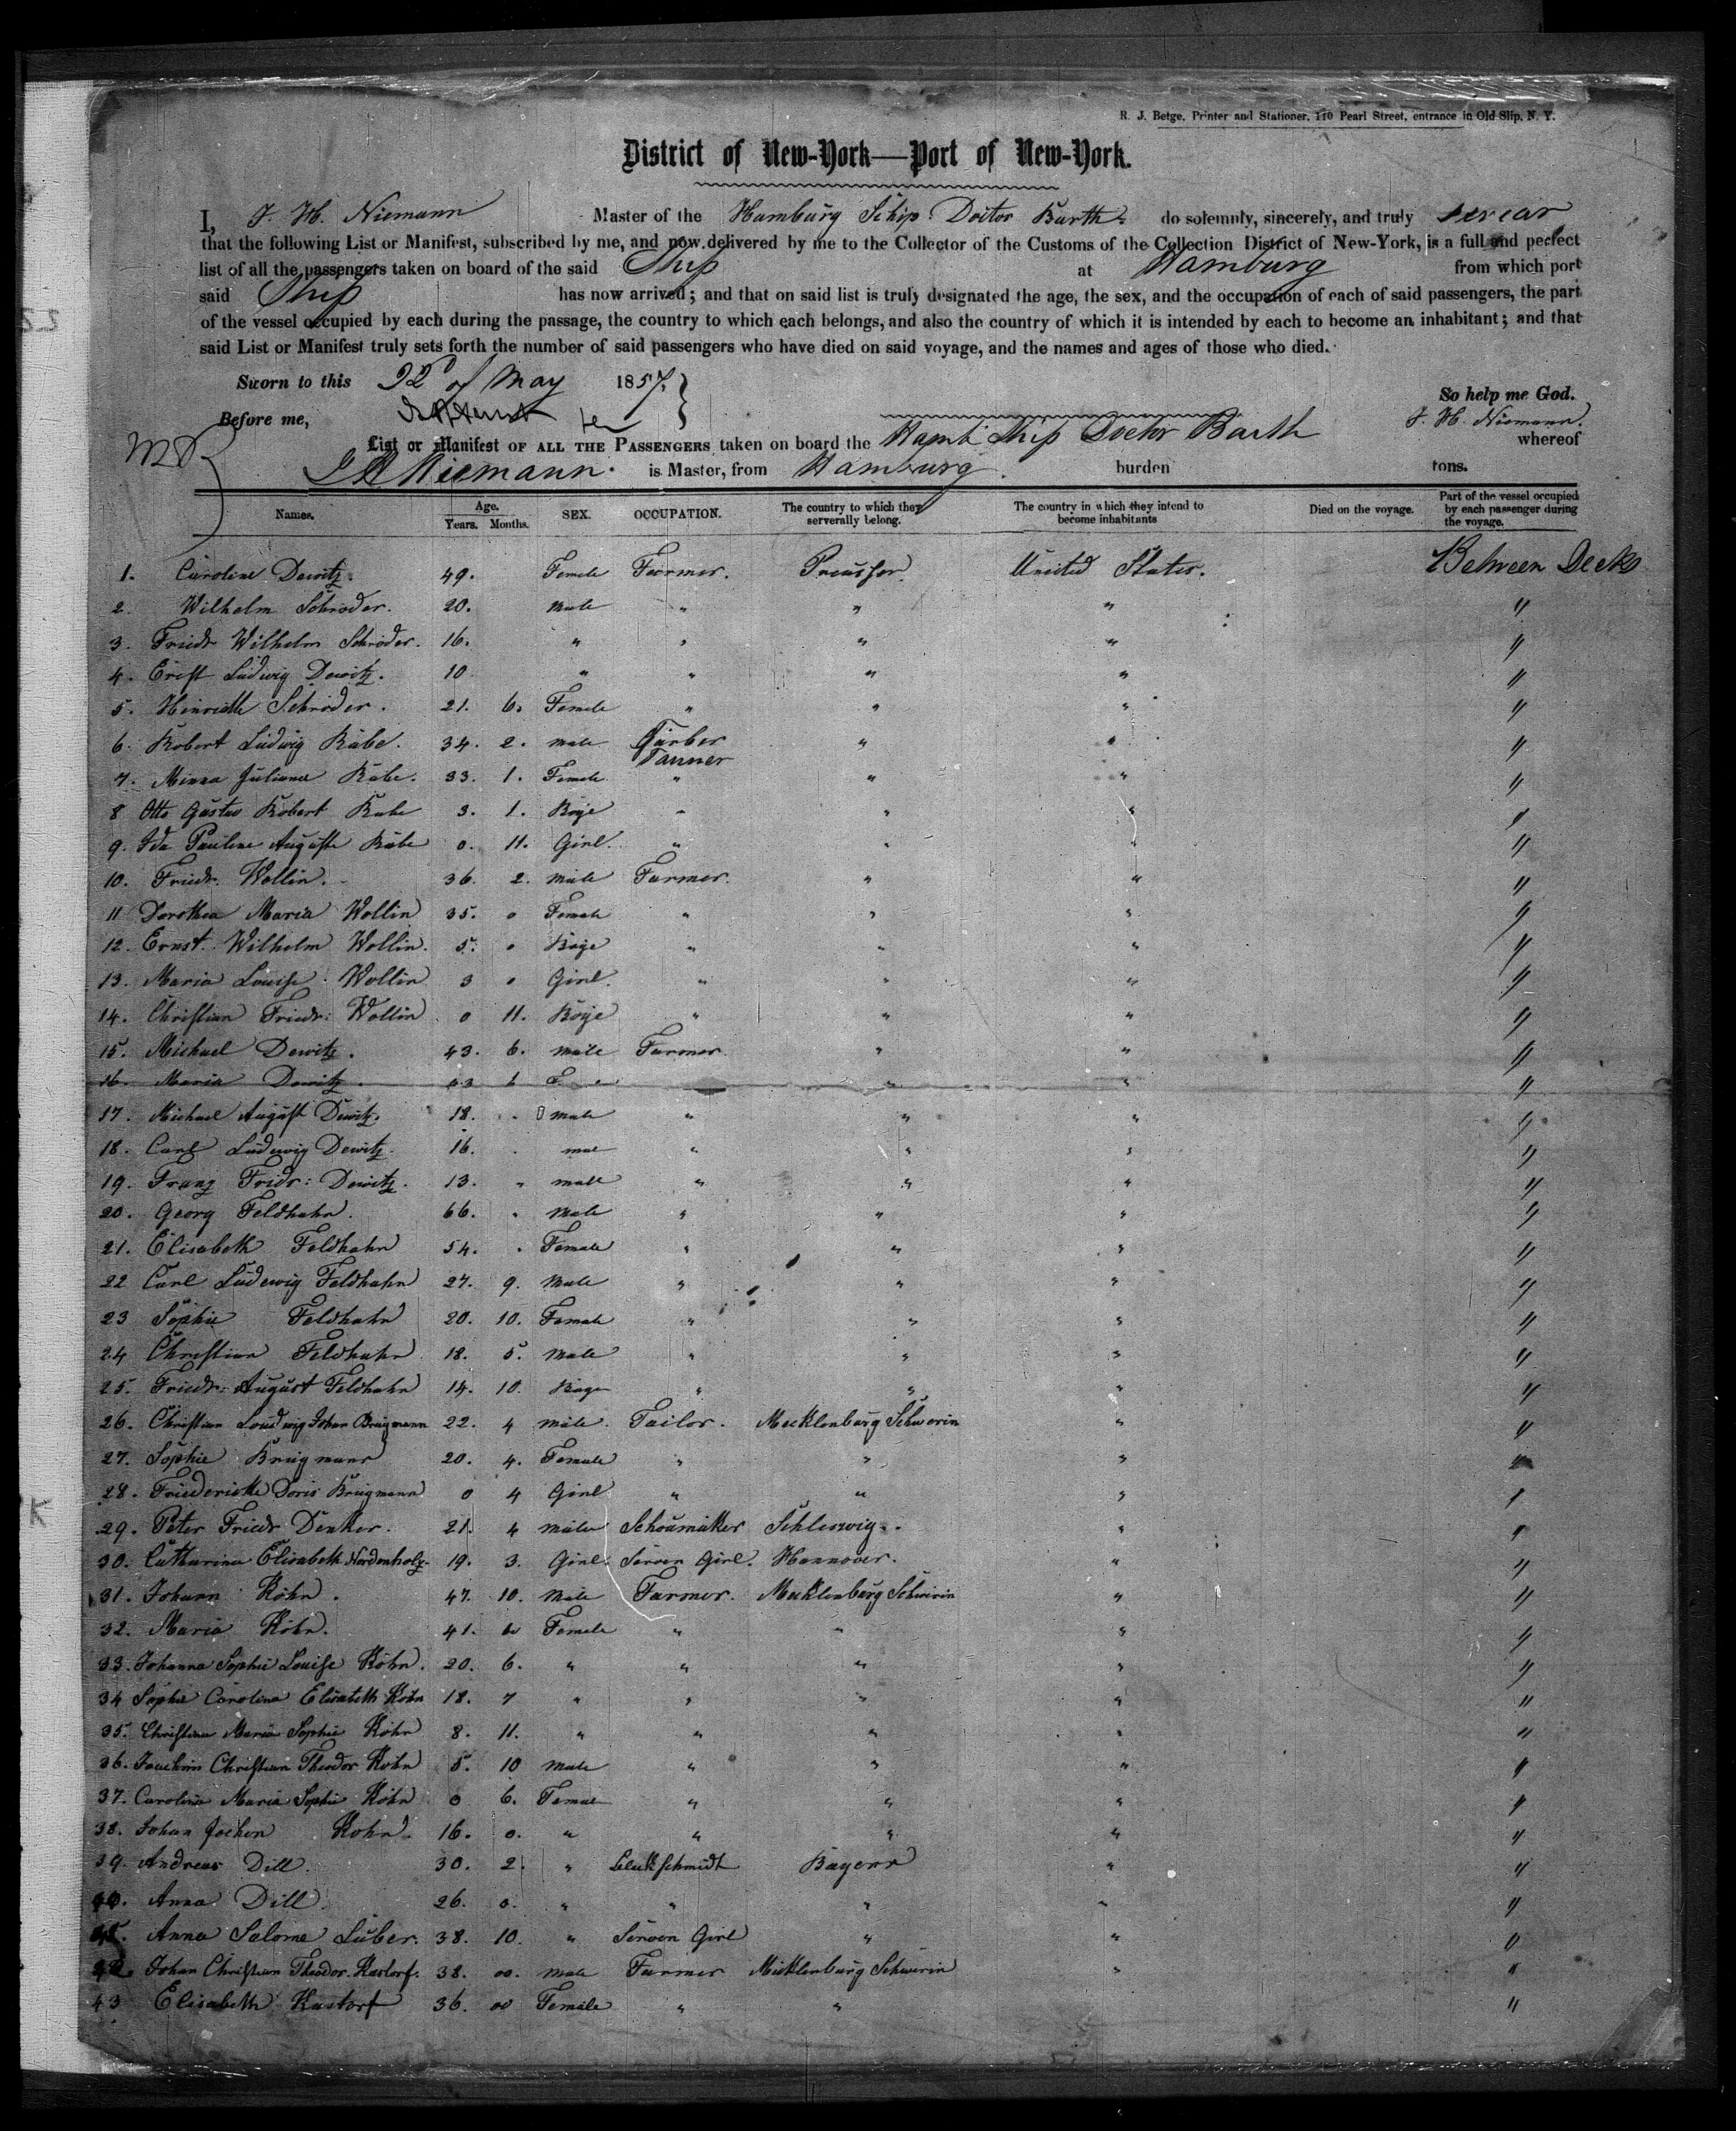 R. J. Betge, Printer and Stationer, 110 Pearl Street, entrance in Old Slip, N. Y.
District of New-York—Port of New-York.
I, J. H. Niemann Master of the Hamburg Schip Doctor Barth do solemnly, sincerely, and truly swear
that the following List or Manifest, subscribed by me, and now delivered by me to the Collector of the Customs of the Collection District of New-York, is a full and perfect
list of all the passengers taken on board of the said Ship at Hamburg from which port
said Ship has now arrived; and that on said list is truly designated the age, the sex, and the occupation of each of said passengers, the part
of the vessel occupied by each during the passage, the country to which each belongs, and also the country of which it is intended by each to become an inhabitant; and that
said List or Manifest truly sets forth the number of said passengers who have died on said voyage, and the names and ages of those who died.
Sworn to this 22d of May 1857 So help me God.
Before me, J. H. Niemann.
List or Manifest OF ALL THE PASSENGERS taken on board the Hamb Ship Doctor Barth whereof
J H Niemann. is Master, from Hamburg burden tons.
Names. Age. Years. Months. SEX. OCCUPATION. The country to which they serverally belong. The country in which they intend to become inhabitants Died on the voyage. Part of the vessel occupied by each passenger during the voyage.
1. Caroline Dewitz. 49. Female Farmer. Preussen. United States. Between Decks
2. Wilhelm Schröder. 20. Male " " " "
3. Friedr Wilhelm Schröder. 16. " " " " "
4. Ernst Ludwig Dewitz. 10 " " " " "
5. Hinriette Schröder. 21. 6. Female " " " "
6. Robert Ludwig Rabe. 34. 2. male Gärber Tanner " " "
7. Minna Juliana Rabe. 33. 1. Female " " " "
8 Otto Gustav Robert Rabe 3. 1. Boye " " " "
9. Ida Pauline Auguste Rabe 0. 11. Girl. " " " "
10. Friedr. Wollin. 36. 2. male Farmer. " " "
11 Dorothea Maria Wollin 35. 0 Female " " " "
12. Ernst Wilhelm Wollin. 5. 0 Boye " " " "
13. Maria Louise Wollin 3 0 Girl. " " " "
14. Christian Friedr: Wollin 0 11. Boye " " " "
15. Michael Dewitz. 43. 6. male Farmer. " " "
16. Maria Dewitz. " " "
17. Michael August Dewitz. 18. male " " " "
18. Carl Ludewig Dewitz. 16. male " " " "
19. Franz Fridr: Dewitz. 13. male " " " "
20. Georg Feldhahn. 66. Male " " " "
21. Elisabeth Feldhahn 54. Female " " " "
22 Carl Ludewig Feldhahn 27. 9. Male " " " "
23 Sophie Feldhahn 20. 10. Female " " " "
24 Christian Feldhahn 18. 5. Male " " " "
25. Friedr: August Feldhahn 14. 10. Boye " " " "
26. Christian Loudwig Johan Brügmann 22. 4 male. Tailor. Mecklenburg Schwerin " "
27. Sophie Brügmann 20. 4. Female " " " "
28. Friederiske Doris Brügmann 0 4 Girl " " " "
29. Peter Friedr Denker. 21. 4 male Schoumaker Schleswig. " "
30. Catharina Elisabeth Nordenholz. 19. 3. Girl. Serven Girl. Hannover. " "
31. Johann Köhn. 47. 10. Male Farmer. Mecklenburg Schwerin " "
32. Maria Köhn. 41. Female " " " "
33. Johanna Sophie Louise Köhn. 20. 6. " " " " "
34 Sophie Carolina Elisabeth Köhn 18. 7 " " " " "
35. Christina Maria Sophie Köhn 8. 11. " " " " "
36. Joachim Christian Theodor Köhn 5. 10 Male " " " "
37. Carolina Maria Sophie Köhn 0 6. Female " " " "
38. Johan Jochen Köhn 16. 0. " " " " "
39. Andreas Dill. 30. 2. " Bleckschmidt Bayern " "
40. Anna Dill. 26. 0. " " " " "
Anna Salome Luber. 38. 10. " Serven Girl " " "
42. Johan Christian Theodor Kastorf. 38. 00. Male Farmer Mecklenburg Schwerin " "
43 Elisabeth Kastorf 36. 00 Female " " "